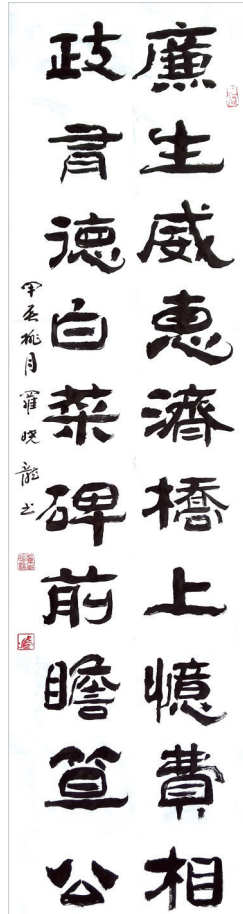 廉生威惠濟橋上憶費相
政德白菜碑前瞻笪公
桃月羅晓龍书